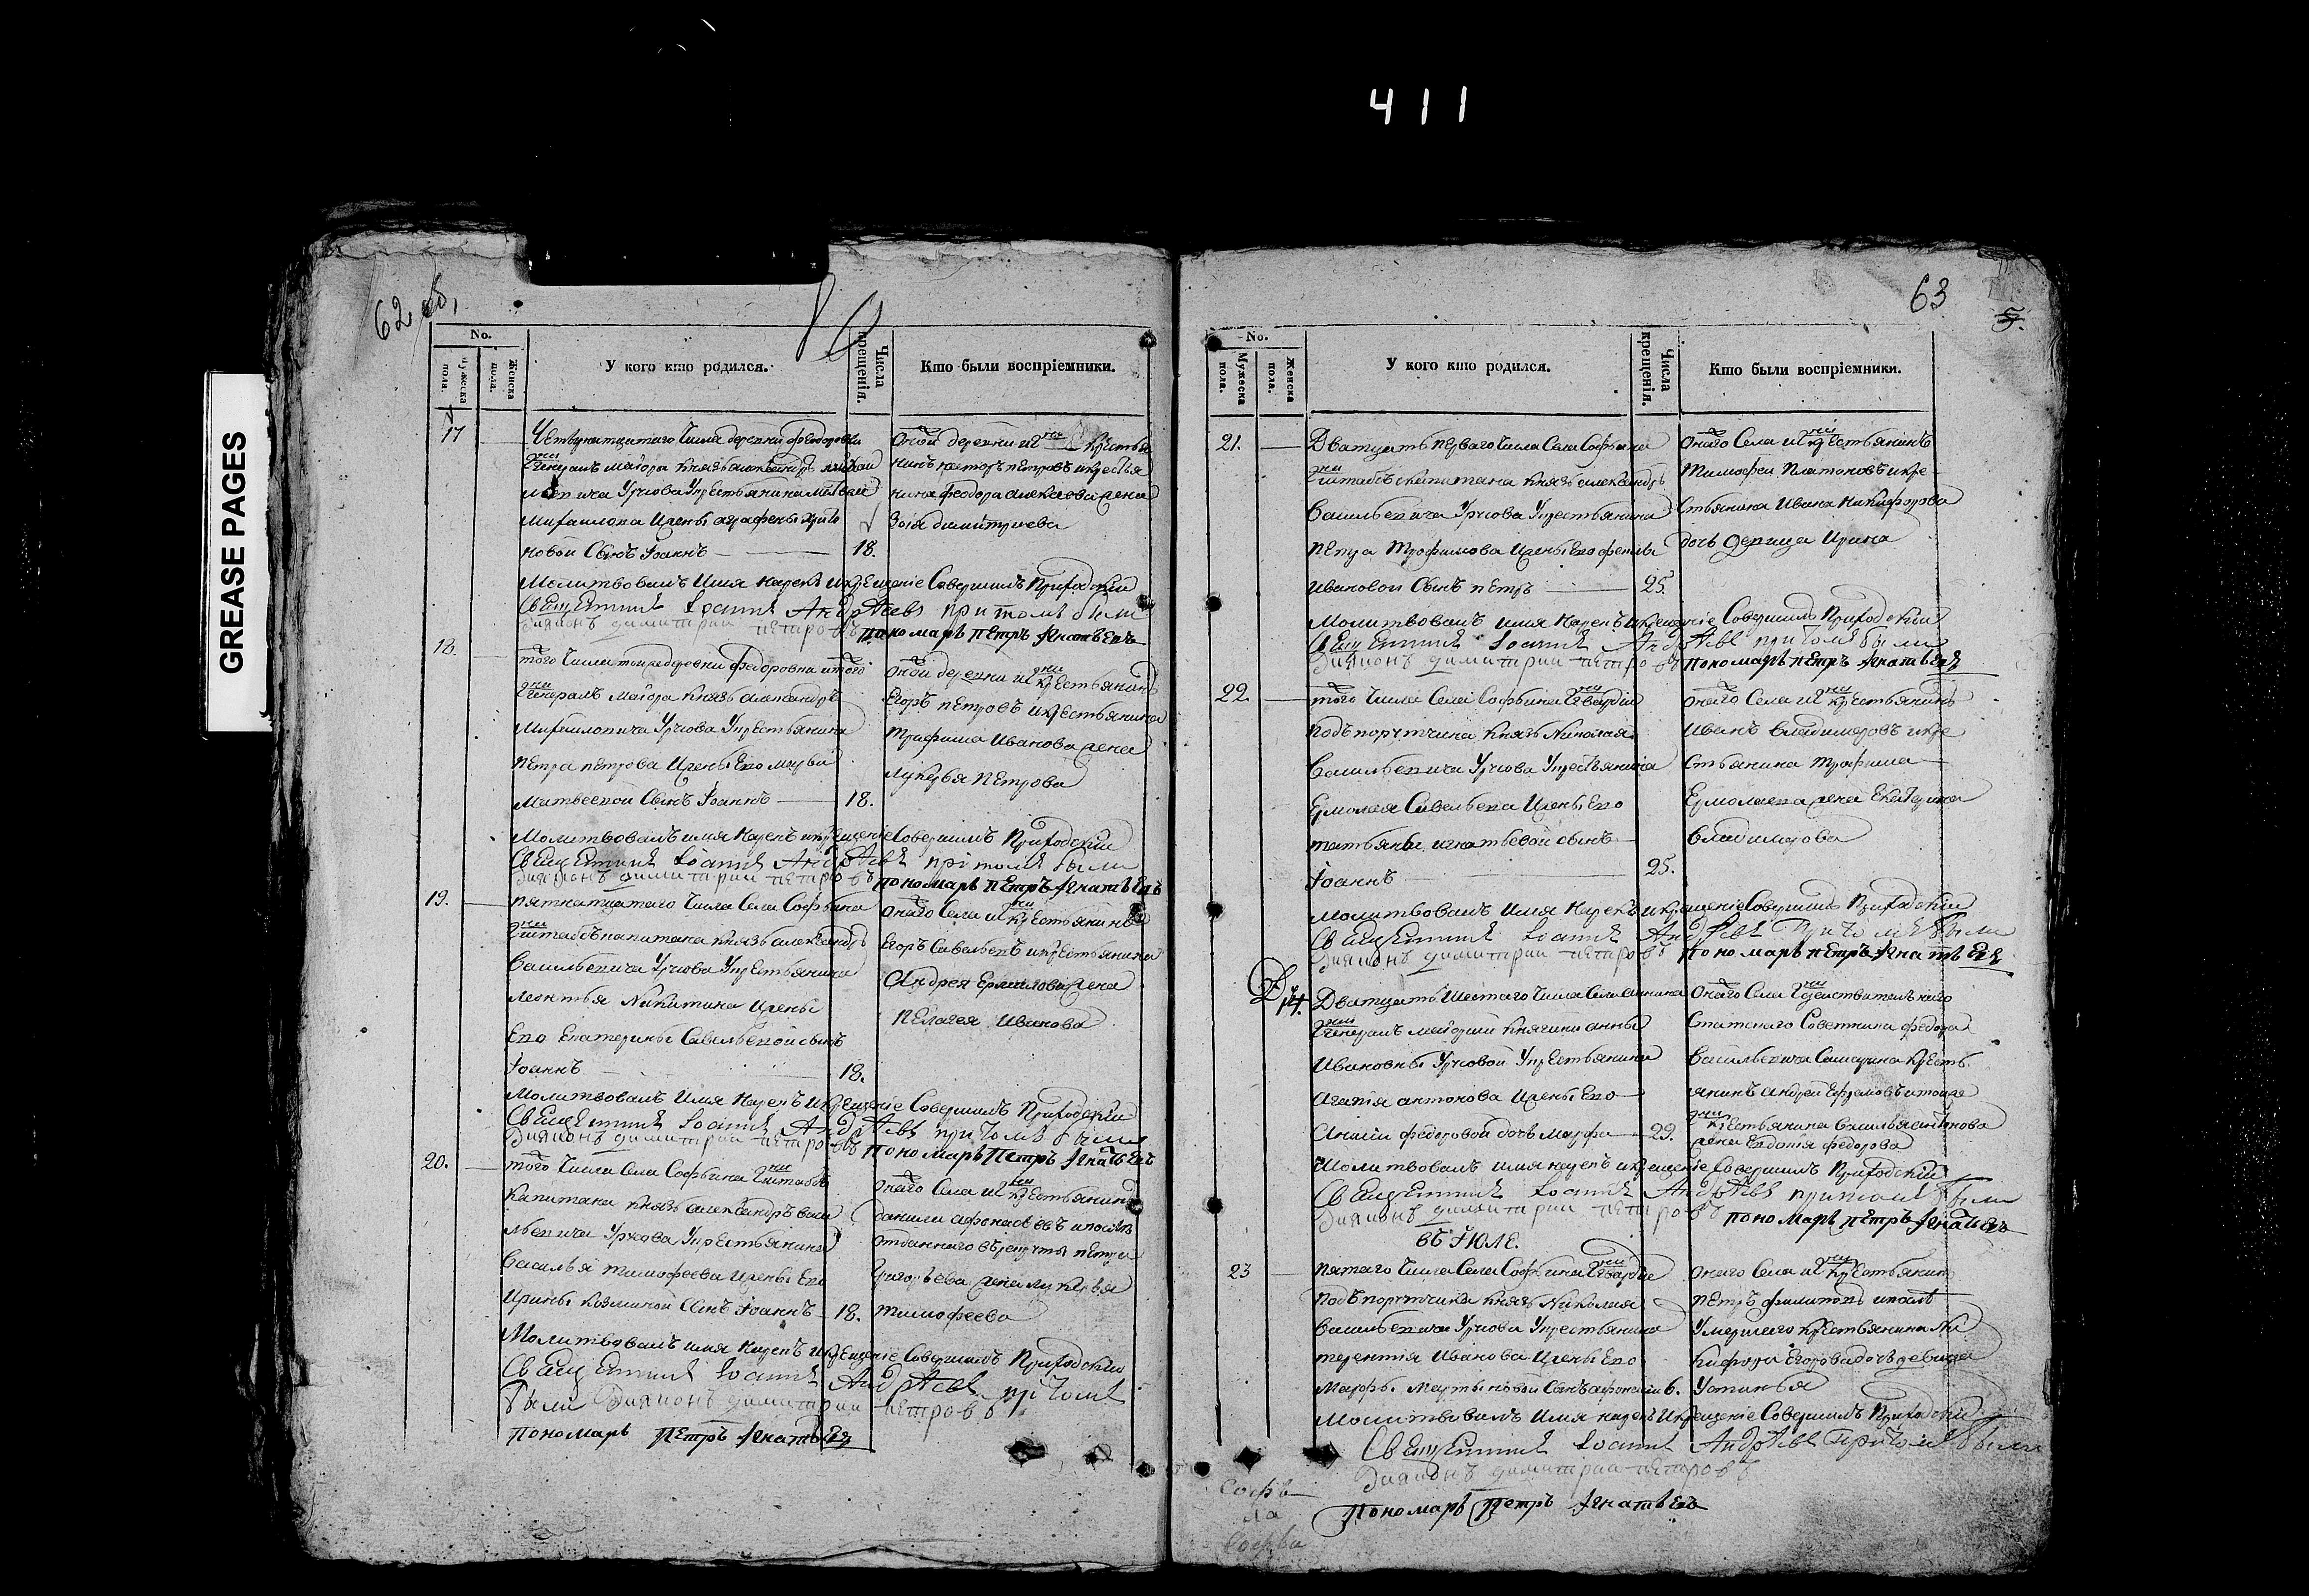 411
GREASE PAGES
62 об.
No.
Мужеска пола.
Женска пола.
У кого кто родился.
Числа крещенія.
Кто были воспріемники.
17
Четвертнатцатаго Числа деревни феодоровки
Гдни Генералъ маіора Князь александръ михаи
ловича Урусова Укрестьянина матвея
михаилова Ижены аграфены
новой Сынъ Іоаннъ 18.
Оной деревни и Гдни крестья
нинъ петровъ икрестья
нина феодора алексеева жена
Зоія димитриева
Молитвовалъ Имя Нарекъ икрещеніе Совершилъ Приходскій
Священникъ Іоаннъ Андрѣевъ притомъ были
Диаконъ димитрий петровъ пономарь петръ Игнатьевъ
18.
того Числа тояже деревни федоровки итогоже
Гдни Генералъ маіора Князь александръ
Михаиловича Урусова Укрестьянина
петра петрова Ижены Его марьи
Матвеевой Сынъ Іоаннъ 18.
Оной деревни и Гдни крестьянинъ
Егоръ петровъ икрестьянина
трафима Иванова жена
лукерья петрова
Молитвовалъ имя Нарекъ икрещеніе Совершилъ Приходскій
Священникъ Іоаннъ Андрѣевъ притомъ были
Диаконъ димитрий петровъ пономарь петръ Игнатьевъ
19.
пятнатцатаго Числа Села Софьина
Гдни штабскапитана Князь александръ
Васильевича Урусова Укрестьянина
леонтья Никитина Ижены
Его Екатерины Савельевой сынъ
Іоаннъ 18.
Онаго Села и Гдни крестьянинъ
Егоръ Савельевъ икрестьянина
Андрея Ермилова жена
Пелагея Иванова
Молитвовалъ Имя Нарекъ Икрещеніе Совершилъ Приходскій
Священникъ Іоаннъ Андрѣевъ притомъ были
Диаконъ димитрий петровъ пономарь Петръ Игнатьевъ
20.
того Числа Села Софьина Гдни штабсъ
Капитана князь александръ васи
льевича Урусова Укрестьянина
Василья тимофеева Ижены Его
Ирины Козминой Сынъ Іоаннъ 18.
Онаго Села и Гдни крестьянинъ
данили афонасьевъ ипослѣ
отданнаго врекруты петра
Григорьева жена лукерья
тимофеева
Молитвовалъ имя Нарекъ Икрещеніе Совершилъ Приходскій
Священникъ Іоаннъ Андрѣевъ притомъ
были Диаконъ димитрий петровъ
пономарь Петръ Игнатьевъ
63
5.
No.
Мужеска пола.
Женска пола.
У кого кто родился.
Числа крещенія.
Кто были воспріемники.
21.
Дватцать перваго Числа Села Софьина
Гдни штабскапитана князь александръ
Васильевича Урусова Укрестьянина
петра трофимова Ижены Его феклы
ивановой Сынъ петръ 25.
Онаго Села и Гдни крестьянинъ
Тимофеи Платоновъ икре
стьянина Ивана Никифорова
дочь девица Ирина
Молитвовалъ имя Нарекъ икрещеніе Совершилъ Приходскій
Священникъ Іоаннъ Андрѣевъ притомъ были
Диаконъ димитрии петровъ пономарь петръ Игнатьевъ
22.
того Числа Села Софьина Гдни гвардіи
подъпорутчика князь Николая
Васильевича Урусова Укрестьянина
Ермолая Савельева Ижены Его
татьяны игнатьевой сынъ
Іоаннъ 25.
Онаго Села и Гдни крестьянинъ
Иванъ владимеровъ икре
стьянина трофима
Ермолаева жена Екатерина
владимерова
Молитвовалъ Имя Нарекъ икрещеніе Совершилъ Приходскій
Священникъ Іоаннъ Андрѣевъ Притомъ были
Диаконъ димитрии петровъ пономарь петръ Игнатьевъ
14.
Дватцать Шестаго Числа Села аннина
Гдни Генералъ маіорши Княгини анны
Ивановны Урусовой Укрестьянина
Агапія антонова Ижены Его
федоровой дочь марфа 29.
Онаго Села Гдна действительнаго
Статскаго Советника федора
Васильевича кресть
янинъ андреи Ефремовъ итоеже
Гдни крестьянина Василья антонова
жена Евдотія федорова
Молитвовалъ имя нарекъ икрещеніе Совершилъ Приходскій
Священникъ Іоаннъ Андрѣевъ притомъ были
Диаконъ димитрии петровъ пономарь петръ Игнатьевъ
въ ІЮЛЕ.
23
пятаго Числа Села Софьина Гдни гвардіе
подъпорутчика князь Николая
Васильевича Урусова Укрестьянина
терентія Иванова Ижены Его
Марфы мартыновой Сынъ афонасіи 6.
Онаго Села и Гдни крестьянинъ
петръ филиповъ ипослѣ
Умершаго крестьянина Ни
кифора Егорова дочь девица
Устинья
Молитвовалъ Имя нарекъ Икрещеніе Совершилъ Приходскій
Священникъ Іоаннъ Андрѣевъ Притомъ были
Диаконъ димитрии петровъ
Пономарь Петръ Игнатьевъ